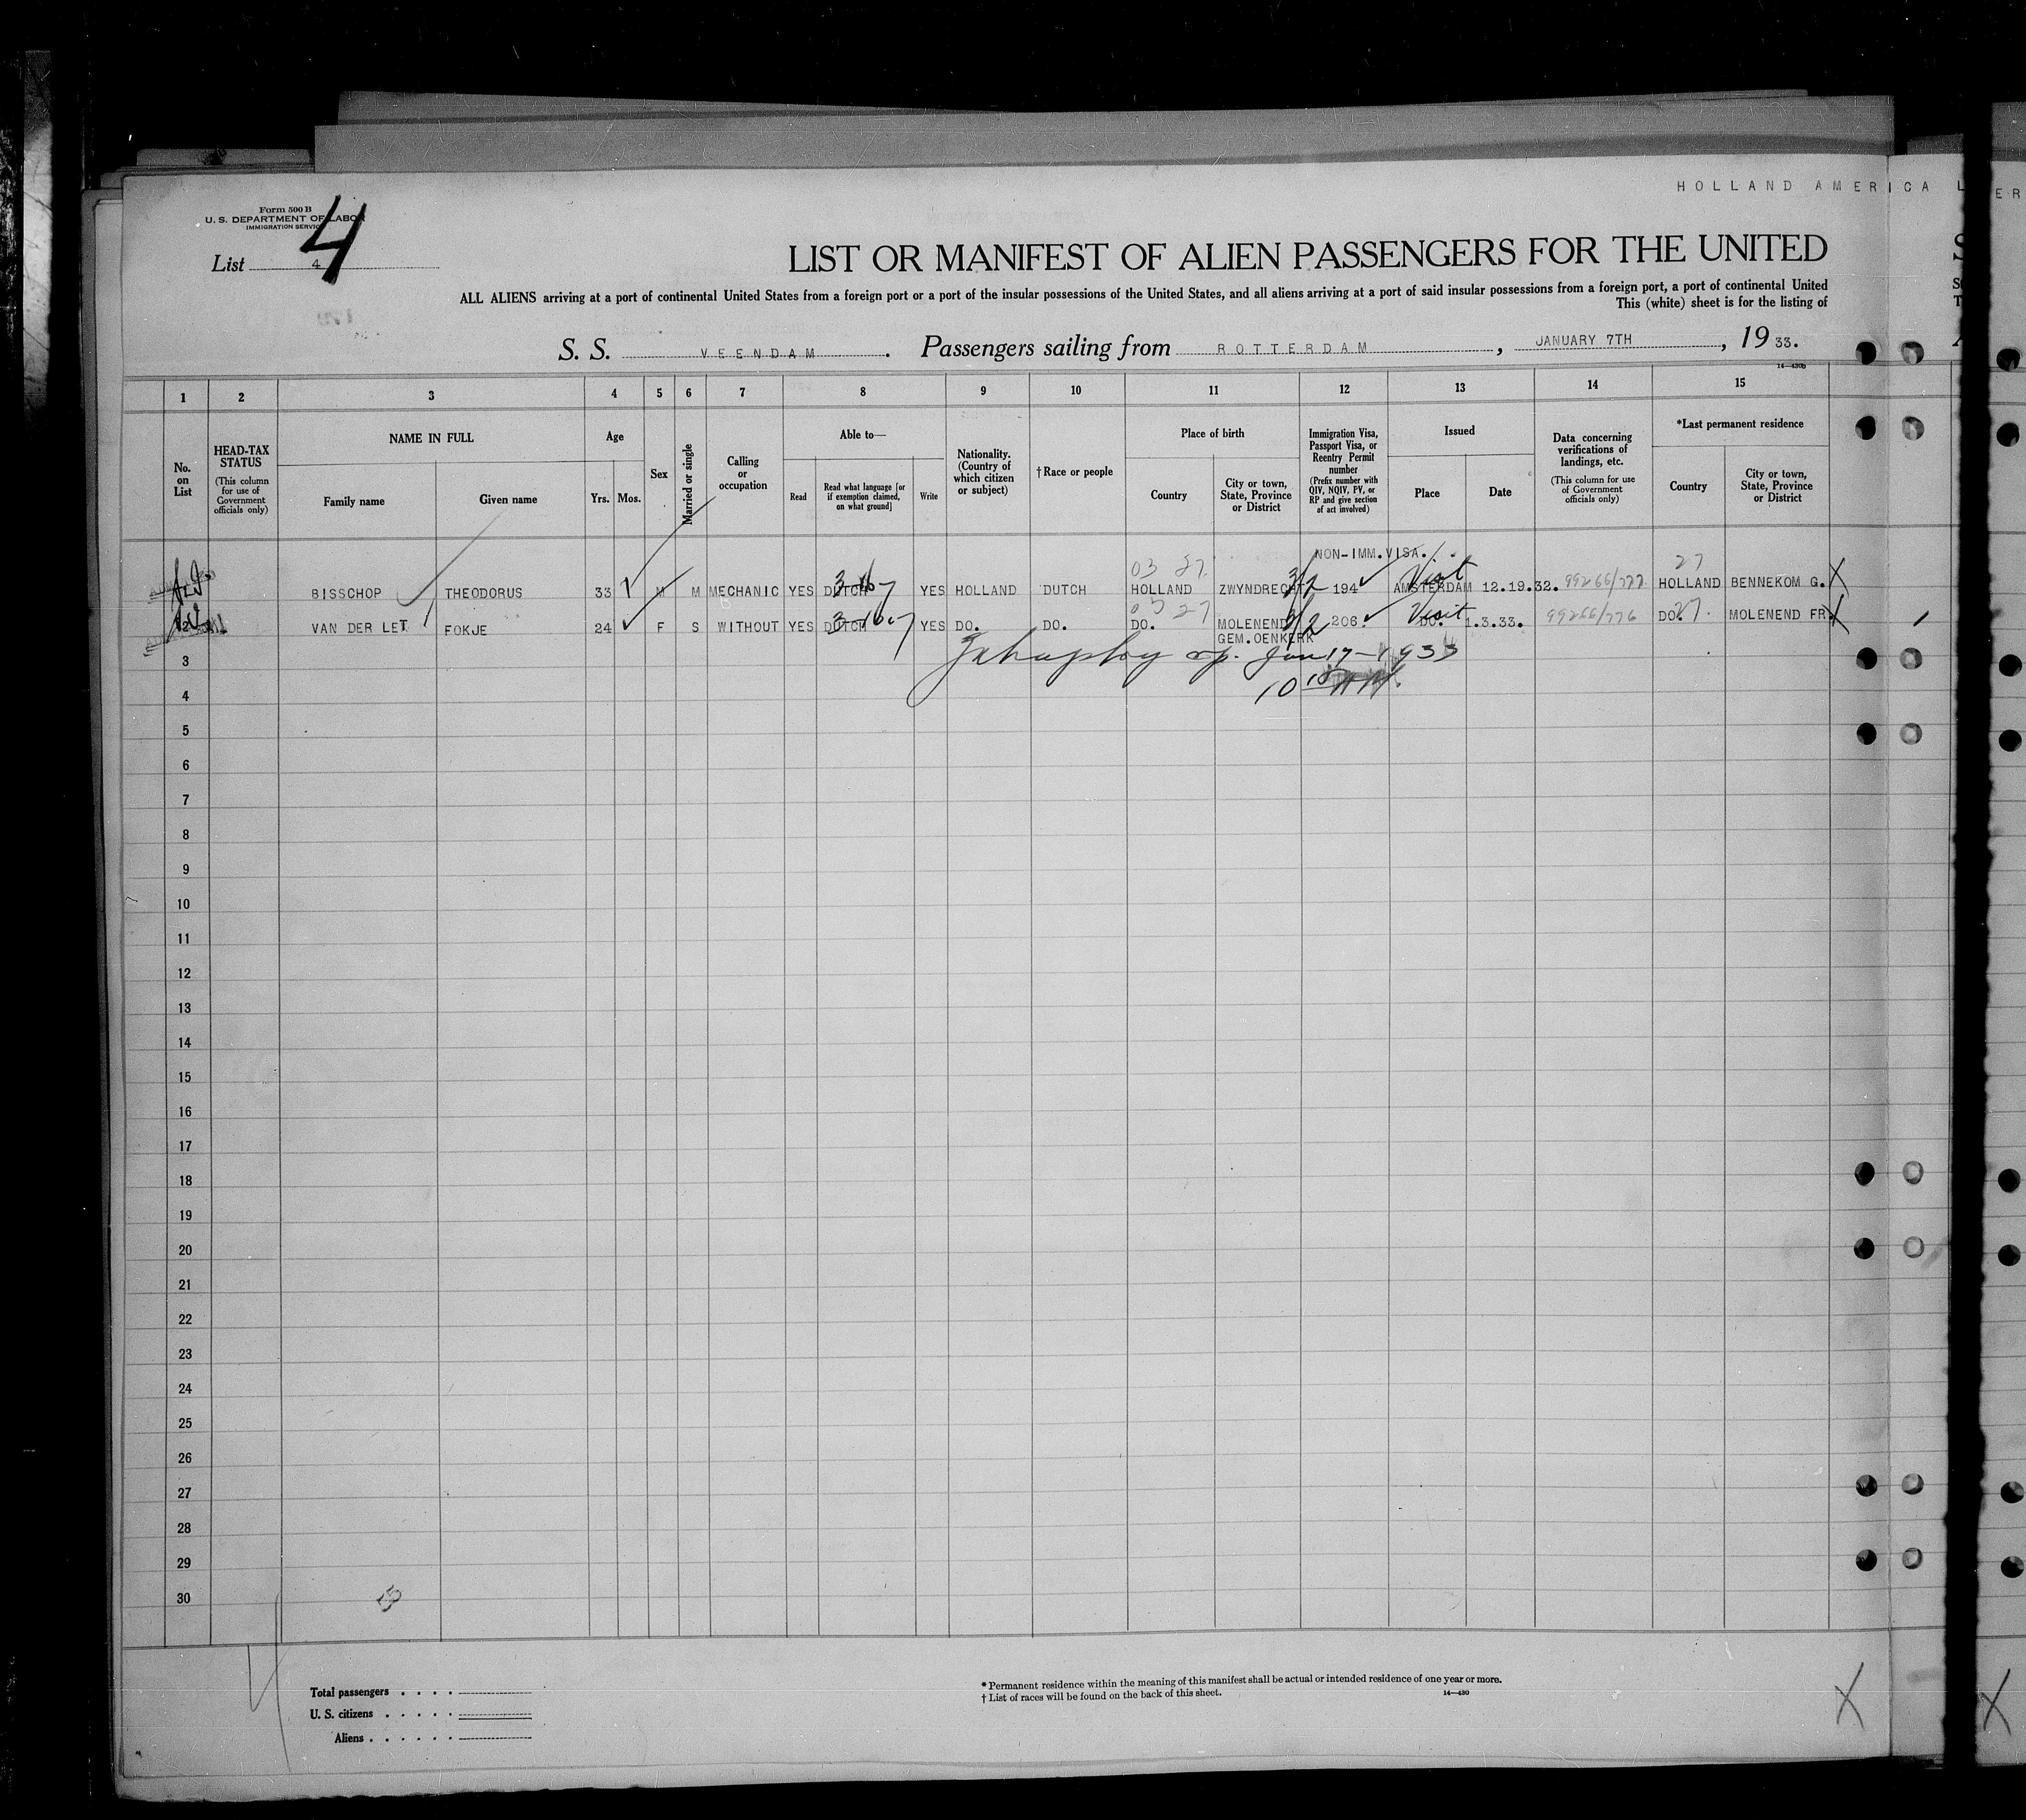 HOLLAND AMERICA L
Form 500 B
U. S. DEPARTMENT OF LABOR
IMMIGRATION SERVICE
4
List 4
LIST OR MANIFEST OF ALIEN PASSENGERS FOR THE UNITED
ALL ALIENS arriving at a port of continental United States from a foreign port or a port of the insular possessions of the United States, and all aliens arriving at a port of said insular possessions from a foreign port, a port of continental United
This (white) sheet is for the listing of
S. S. VEENDAM. Passengers sailing from ROTTERDAM, JANUARY 7TH, 1933.
14—430b
1 2 3 4 5 6 7 8 9 10 11 12 13 14 15
No. on List
HEAD-TAX STATUS (This column for use of Government officials only)
NAME IN FULL
Family name
Given name
Age
Yrs.
Mos.
Sex
Married or single
Calling or occupation
Able to—
Read
Read what language [or if exemption claimed, on what ground]
Write
Nationality. (Country of which citizen or subject)
†Race or people
Place of birth
Country
City or town, State, Province or District
Immigration Visa, Passport Visa, or Reentry Permit number (Prefix number with QIV, NQIV, PV, or RP and give section of act involved)
Issued
Place
Date
Data concerning verifications of landings, etc. (This column for use of Government officials only)
*Last permanent residence
Country
City or town, State, Province or District
NON-IMM.VISA.
03 27 3/2 Visit 27
BISSCHOP THEODORUS 33 M M MECHANIC YES DUTCH YES HOLLAND DUTCH HOLLAND ZWYNDRECHT 194 AMSTERDAM 12.19.32. 99266/777 HOLLAND BENNEKOM G.
03 27 3/2 Visit 27
2 VAN DER LET FOKJE 24 F S WITHOUT YES DUTCH YES DO. DO. DO. MOLENEND 206. DO. 1.3.33. 99266/776 DO. MOLENEND FR.
GEM.OENKERK
3
Jan 17-1933
4
10 10 AM.
5
6
7
8
9
10
11
12
13
14
15
16
17
18
19
20
21
22
23
24
25
26
27
28
29
30
Total passengers
U. S. citizens
Aliens
* Permanent residence within the meaning of this manifest shall be actual or intended residence of one year or more.
† List of races will be found on the back of this sheet.
14—430
X X